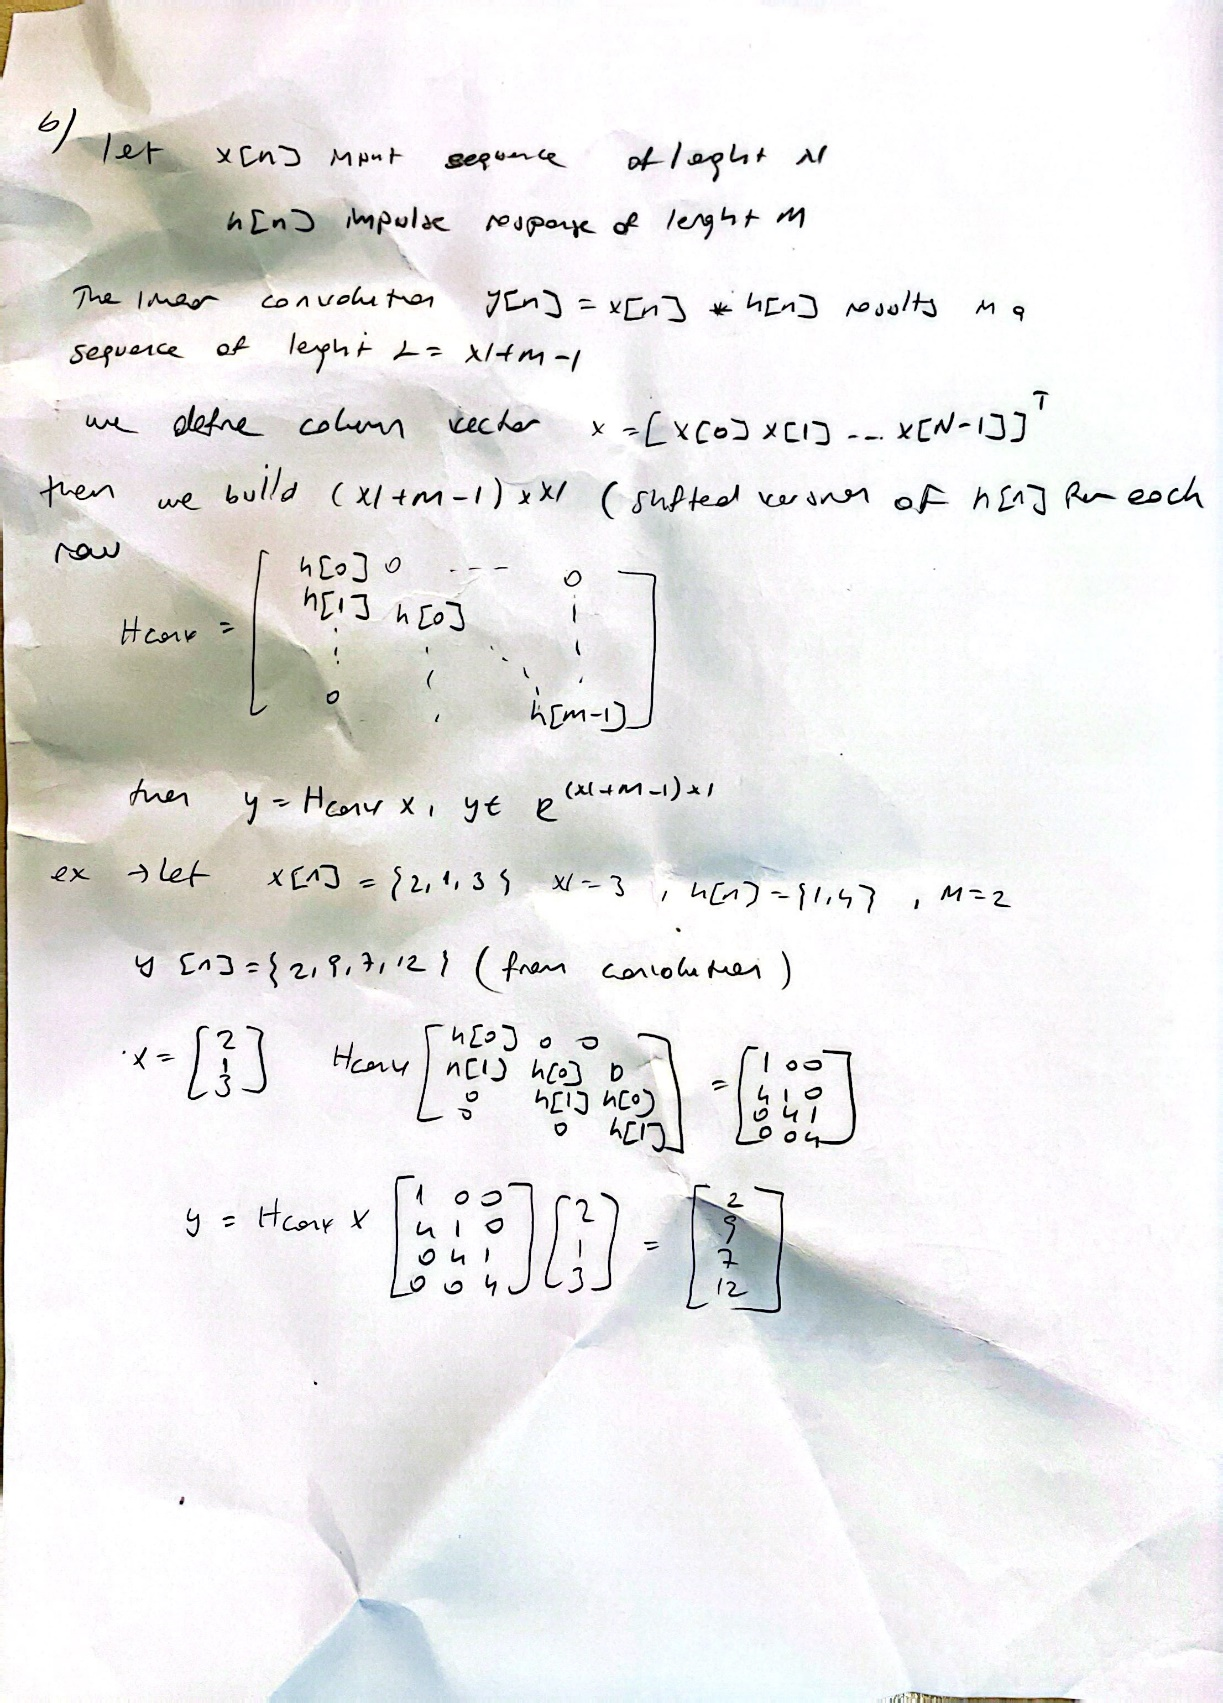 b)
let x[n] input sequence of leght N
h[n] impulse response of lenght M
The linear convolution y[n] = x[n] * h[n] results in a
sequence of lenght L = N+M-1
we define column vector x = [x[0] x[1] --- x[N-1]]^T
then we build (N+M-1) x N ( shifted version of h[n] for each
row
Hconv = [ h[0] 0 --- 0
h[1] h[0]
0 h[M-1] ]
then y = Hconv x, y ∈ R^(N+M-1)x1
ex → let x[n] = {2,1,3} N=3 , h[n] = {1,4} , M=2
y[n] = {2,9,7,12} (from convolution)
x = [2 1 3] Hconv [h[0] 0 0
h[1] h[0] 0
0 h[1] h[0]
0 0 h[1]] = [1 0 0
4 1 0
0 4 1
0 0 4]
y = Hconv x [1 0 0
4 1 0
0 4 1
0 0 4] [2 1 3] = [2 9 7 12]